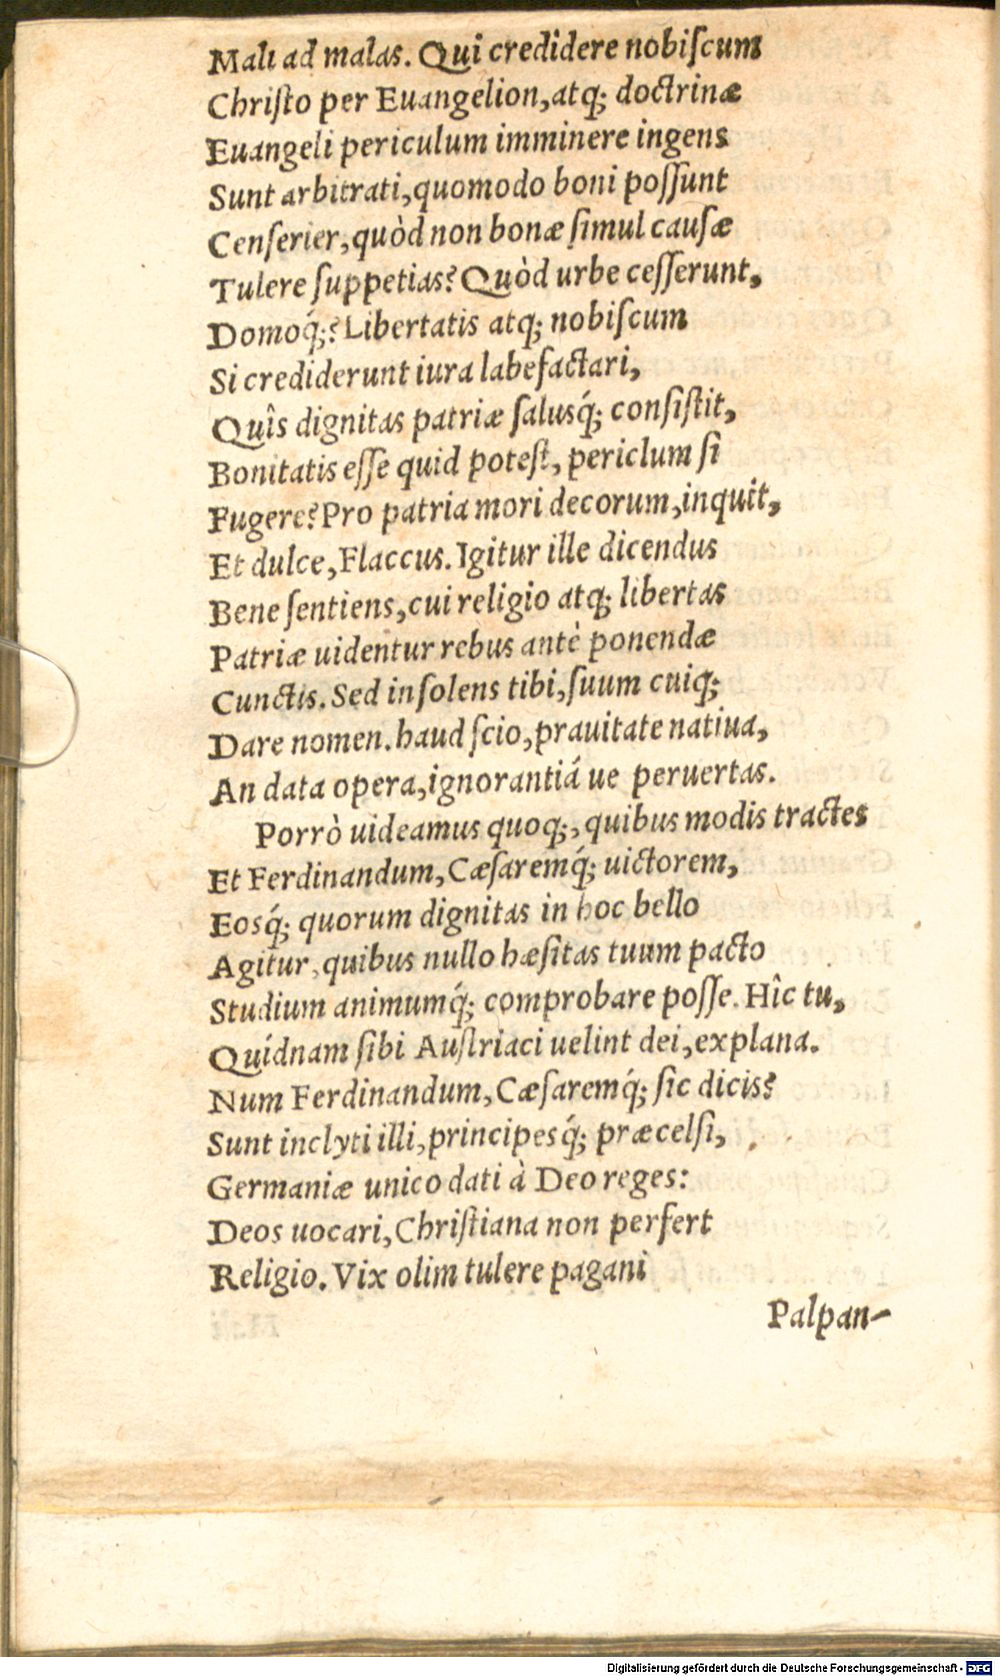 Mali ad malas. Qui credidere nobiſcum
Chriſto per Euangelion, atq; doctrinæ
Euangeli periculum imminere ingens
Sunt arbitrati, quomodo boni poſſunt
Cenſerier, quòd non bonæ ſimul cauſæ
Tulere ſuppetias? Quòd urbe ceſſerunt,
Domoq́;? Libertatis atq; nobiſcum
Si crediderunt iura labefactari,
Quîs dignitas patriæ ſalusq́; conſiſtit,
Bonitatis eſſe quid poteſt, periclum ſi
Fugere? Pro patria mori decorum, inquit,
Et dulce, Flaccus. Igitur ille dicendus
Bene ſentiens, cui religio atq; libertas
Patriæ uidentur rebus antè ponendæ
Cunctis. Sed inſolens tibi, ſuum cuiq;
Dare nomen. haud ſcio, prauitate natiua,
An data opera, ignorantiá ue peruertas.
Porrò uideamus quoq;, quibus modis tractes
Et Ferdinandum, Cæſaremq́; uictorem,
Eosq́; quorum dignitas in hoc bello
Agitur, quibus nullo hæſitas tuum pacto
Studium animumq́; comprobare poſſe. Hîc tu,
Quidnam ſibi Auſtriaci uelint dei, explana.
Num Ferdinandum, Cæſaremq́; ſic dicis?
Sunt inclyti illi, principesq́; præcelſi,
Germaniæ unico dati à Deo reges:
Deos uocari, Chriſtiana non perfert
Religio. Vix olim tulere pagani
Palpan-
Digitalisierung gefördert durch die Deutsche Forschungsgemeinschaft - DFG